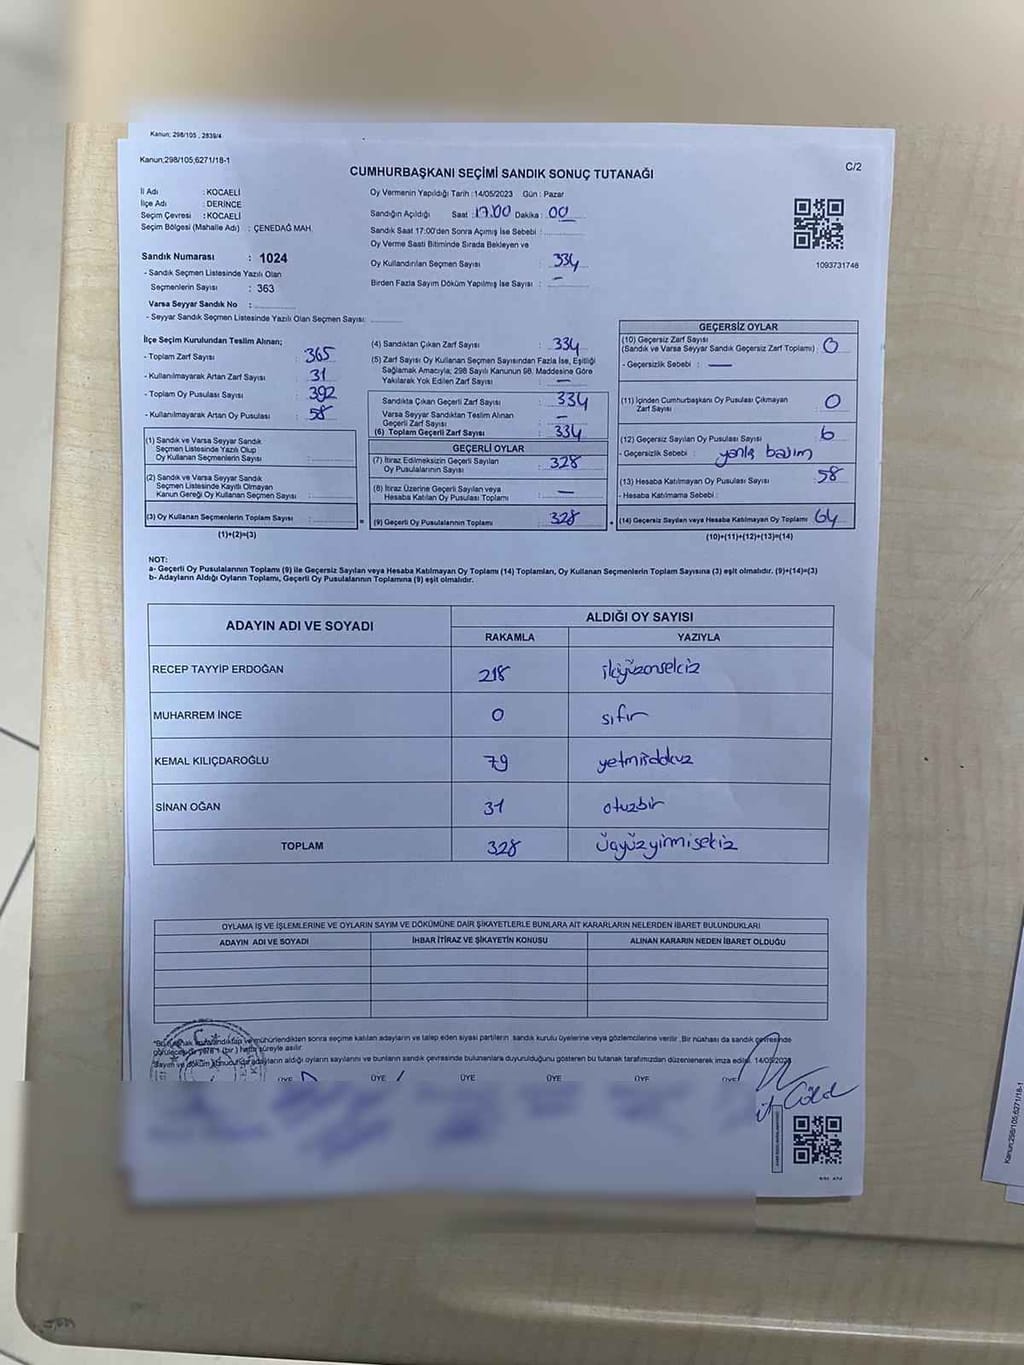 Kanun; 298/105 , 2839/4
Kanun;298/105,6271/18-1
C/2
CUMHURBAŞKANI SEÇİMİ SANDIK SONUÇ TUTANAĞI
İl Adı : KOCAELİ
İlçe Adı : DERİNCE
Seçim Çevresi : KOCAELİ
Seçim Bölgesi (Mahalle Adı) : ÇENEDAĞ MAH.
Sandık Numarası : 1024
- Sandık Seçmen Listesinde Yazılı Olan
Seçmenlerin Sayısı : 363
Varsa Seyyar Sandık No :
- Seyyar Sandık Seçmen Listesinde Yazılı Olan Seçmen Sayısı:
Oy Vermenin Yapıldığı Tarih : 14/05/2023 Gün : Pazar
Sandığın Açıldığı Saat : 17.00 Dakika : 00
Sandık Saat 17:00'den Sonra Açımış İse Sebebi :
Oy Verme Saati Bitiminde Sırada Bekleyen ve
Oy Kullandırılan Seçmen Sayısı : 334
Birden Fazla Sayım Döküm Yapılmış İse Sayısı : —
1093731748
İlçe Seçim Kurulundan Teslim Alınan;
- Toplam Zarf Sayısı : 365
- Kullanılmayarak Artan Zarf Sayısı : 31
- Toplam Oy Pusulası Sayısı : 392
- Kullanılmayarak Artan Oy Pusulası : 58
(1) Sandık ve Varsa Seyyar Sandık
Seçmen Listesinde Yazılı Olup
Oy Kullanan Seçmenlerin Sayısı :
(2) Sandık ve Varsa Seyyar Sandık
Seçmen Listesinde Kayıtlı Olmayan
Kanun Gereği Oy Kullanan Seçmen Sayısı :
(3) Oy Kullanan Seçmenlerin Toplam Sayısı :
(1)+(2)=(3)
(4) Sandıktan Çıkan Zarf Sayısı : 334
(5) Zarf Sayısı Oy Kullanan Seçmen Sayısından Fazla İse, Eşitliği
Sağlamak Amacıyla; 298 Sayılı Kanunun 98. Maddesine Göre
Yakılarak Yok Edilen Zarf Sayısı : —
Sandıkta Çıkan Geçerli Zarf Sayısı : 334
Varsa Seyyar Sandıktan Teslim Alınan
Geçerli Zarf Sayısı : —
(6) Toplam Geçerli Zarf Sayısı : 334
GEÇERLİ OYLAR
(7) İtiraz Edilmeksizin Geçerli Sayılan
Oy Pusulalarının Sayısı : 328
(8) İtiraz Üzerine Geçerli Sayılan veya
Hesaba Katılan Oy Pusulası Toplamı : —
= (9) Geçerli Oy Pusulalarının Toplamı : 328
GEÇERSİZ OYLAR
(10) Geçersiz Zarf Sayısı
(Sandık ve Varsa Seyyar Sandık Geçersiz Zarf Toplamı) : 0
- Geçersizlik Sebebi : —
(11) İçinden Cumhurbaşkanı Oy Pusulası Çıkmayan
Zarf Sayısı 0
(12) Geçersiz Sayılan Oy Pusulası Sayısı 6
- Geçersizlik Sebebi : yanlış basım
(13) Hesaba Katılmayan Oy Pusulası Sayısı : 58
- Hesaba Katılmama Sebebi :
+ (14) Geçersiz Sayılan veya Hesaba Katılmayan Oy Toplamı : 64
(10)+(11)+(12)+(13)=(14)
NOT:
a- Geçerli Oy Pusulalarının Toplamı (9) ile Geçersiz Sayılan veya Hesaba Katılmayan Oy Toplamı (14) Toplamları, Oy Kullanan Seçmenlerin Toplam Sayısına (3) eşit olmalıdır. (9)+(14)=(3)
b- Adayların Aldığı Oyların Toplamı, Geçerli Oy Pusulalarının Toplamına (9) eşit olmalıdır.
ADAYIN ADI VE SOYADI ALDIĞI OY SAYISI
RAKAMLA YAZIYLA
RECEP TAYYİP ERDOĞAN 218 ikiyüzonsekiz
MUHARREM İNCE 0 sıfır
KEMAL KILIÇDAROĞLU 79 yetmişdokuz
SİNAN OĞAN 31 otuzbir
TOPLAM 328 üçyüzyirmisekiz
OYLAMA İŞ VE İŞLEMLERİNE VE OYLARIN SAYIM VE DÖKÜMÜNE DAİR ŞİKAYETLERLE BUNLARA AİT KARARLARIN NELERDEN İBARET BULUNDUKLARI
ADAYIN ADI VE SOYADI İHBAR İTİRAZ VE ŞİKAYETİN KONUSU ALINAN KARARIN NEDEN İBARET OLDUĞU
mühürlendikten sonra seçime katılan adayların ve talep eden siyasi partilerin sandık kurulu üyelerine veya gözlemcilerine verilir .Bir nüshası da sandık çevresinde
süreyle asılır.
adayların aldığı oyların sayılarını ve bunların sandık çevresinde bulunanlara duyurulduğunu gösteren bu tutanak tarafımızdan düzenlenerek imza edildi. 14/05/2023
ÜYE ÜYE ÜYE ÜYE ÜYE ÜYE
Kanun;298/105,6271/18-1